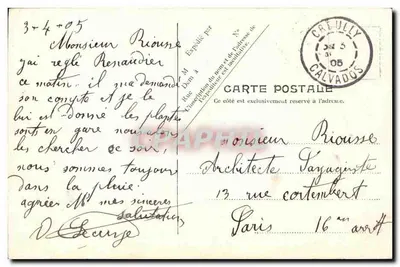 3-4-05
Monsieur Riousse
j'ai reglé Renaudier
ce matin. il m'a demandé
son compte et je le
lui est donné les plantes
sont en gare nous allons
les chercher ce soir,
nous sommes toujours
dans la pluie.
agréer Mr mes sinceres
salutations
M
Expédié par
Rue
L'inscription du nom et de l'adresse de
l'Expéditeur est facultative.
CALVADOS
05
CARTE POSTALE
Ce côté est exclusivement réservé à l'adresse.
Monsieur Riousse
Architecte Paysagiste
13 rue cortembert
Paris 16me arrt